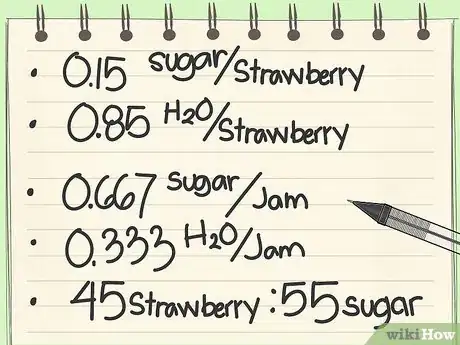 • 0.15 sugar/Strawberry
• 0.85 H2O/Strawberry
• 0.667 sugar/Jam
• 0.333 H2O/Jam
• 45 Strawberry : 55 sugar
wikiHow